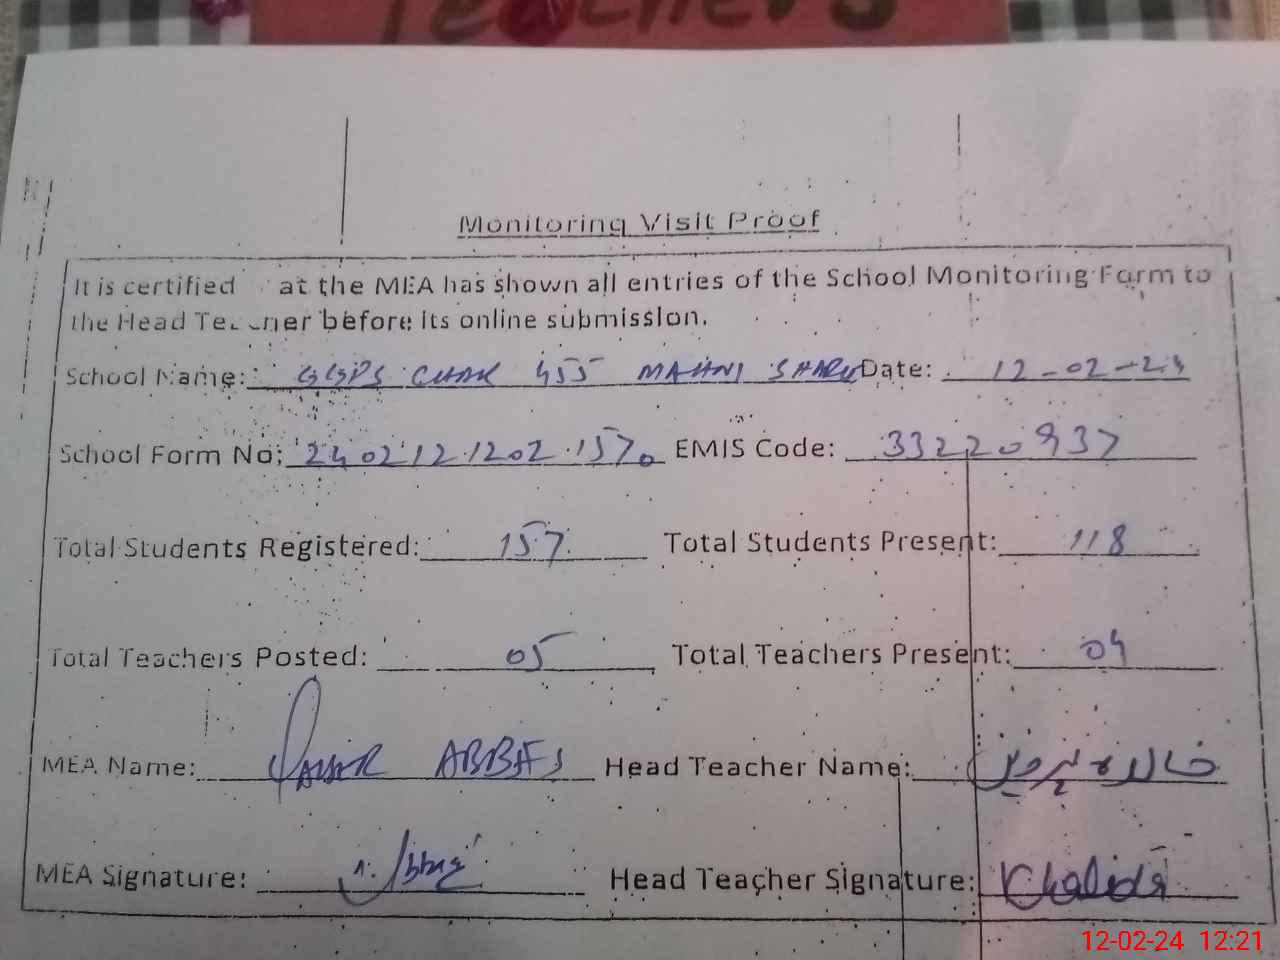 Teachers
Monitoring Visit Proof
It is certified at the MEA has shown all entries of the School Monitoring Form to
the Head Teacher before its online submission.
School Name: GGPS CHAK 455 MAHNI Date: 12-02-24
School Form No: 2402121202157 EMIS Code: 33220937
Total Students Registered: 157 Total Students Present: 118
Total Teachers Posted: 05 Total Teachers Present: 04
MEA Name: QAISAR ABBAS Head Teacher Name: خالدہ پروین
MEA Signature: Head Teacher Signature: Khalida
12-02-24 12:21